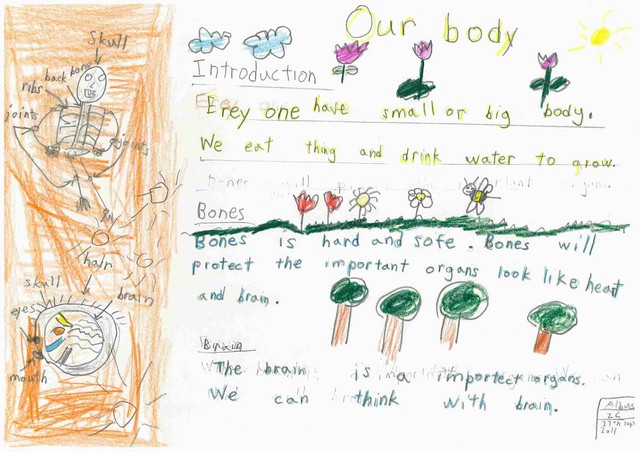 Our body
Introduction
Erey one have small or big body.
We eat thing and drink water to grow.
Bones
Bones is hard and sofe. Bones will
protect the important organs look like heart
and brain.
The brain is a importect organs.
We can think with brain.
skull
back bone
ribs
joints
joints
hair
skull
brain
eyes
mouth
Albus
2C
27th Sep
2011